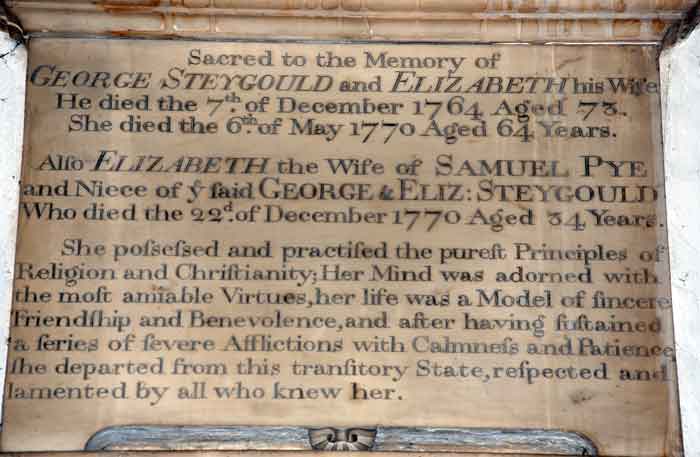 Sacred to the Memory of
GEORGE STEYGOULD and ELIZABETH his Wife
He died the 7th. of December 1764 Aged 73.
She died the 6th. of May 1770 Aged 64 Years.
Alſo ELIZABETH the Wife of SAMUEL PYE
and Niece of ẏ ſaid GEORGE & ELIZ: STEYGOULD
Who died the 22d. of December 1770 Aged 34 Years.
She poſseſsed and practiſed the pureſt Principles of
Religion and Chriſtianity; Her Mind was adorned with
the moſt amiable Virtues, her life was a Model of ſincere
Friendſhip and Benevolence, and after having ſuſtained
a ſeries of ſevere Afflictions with Calmneſs and Patience
ſhe departed from this tranſitory State, reſpected and
lamented by all who knew her.